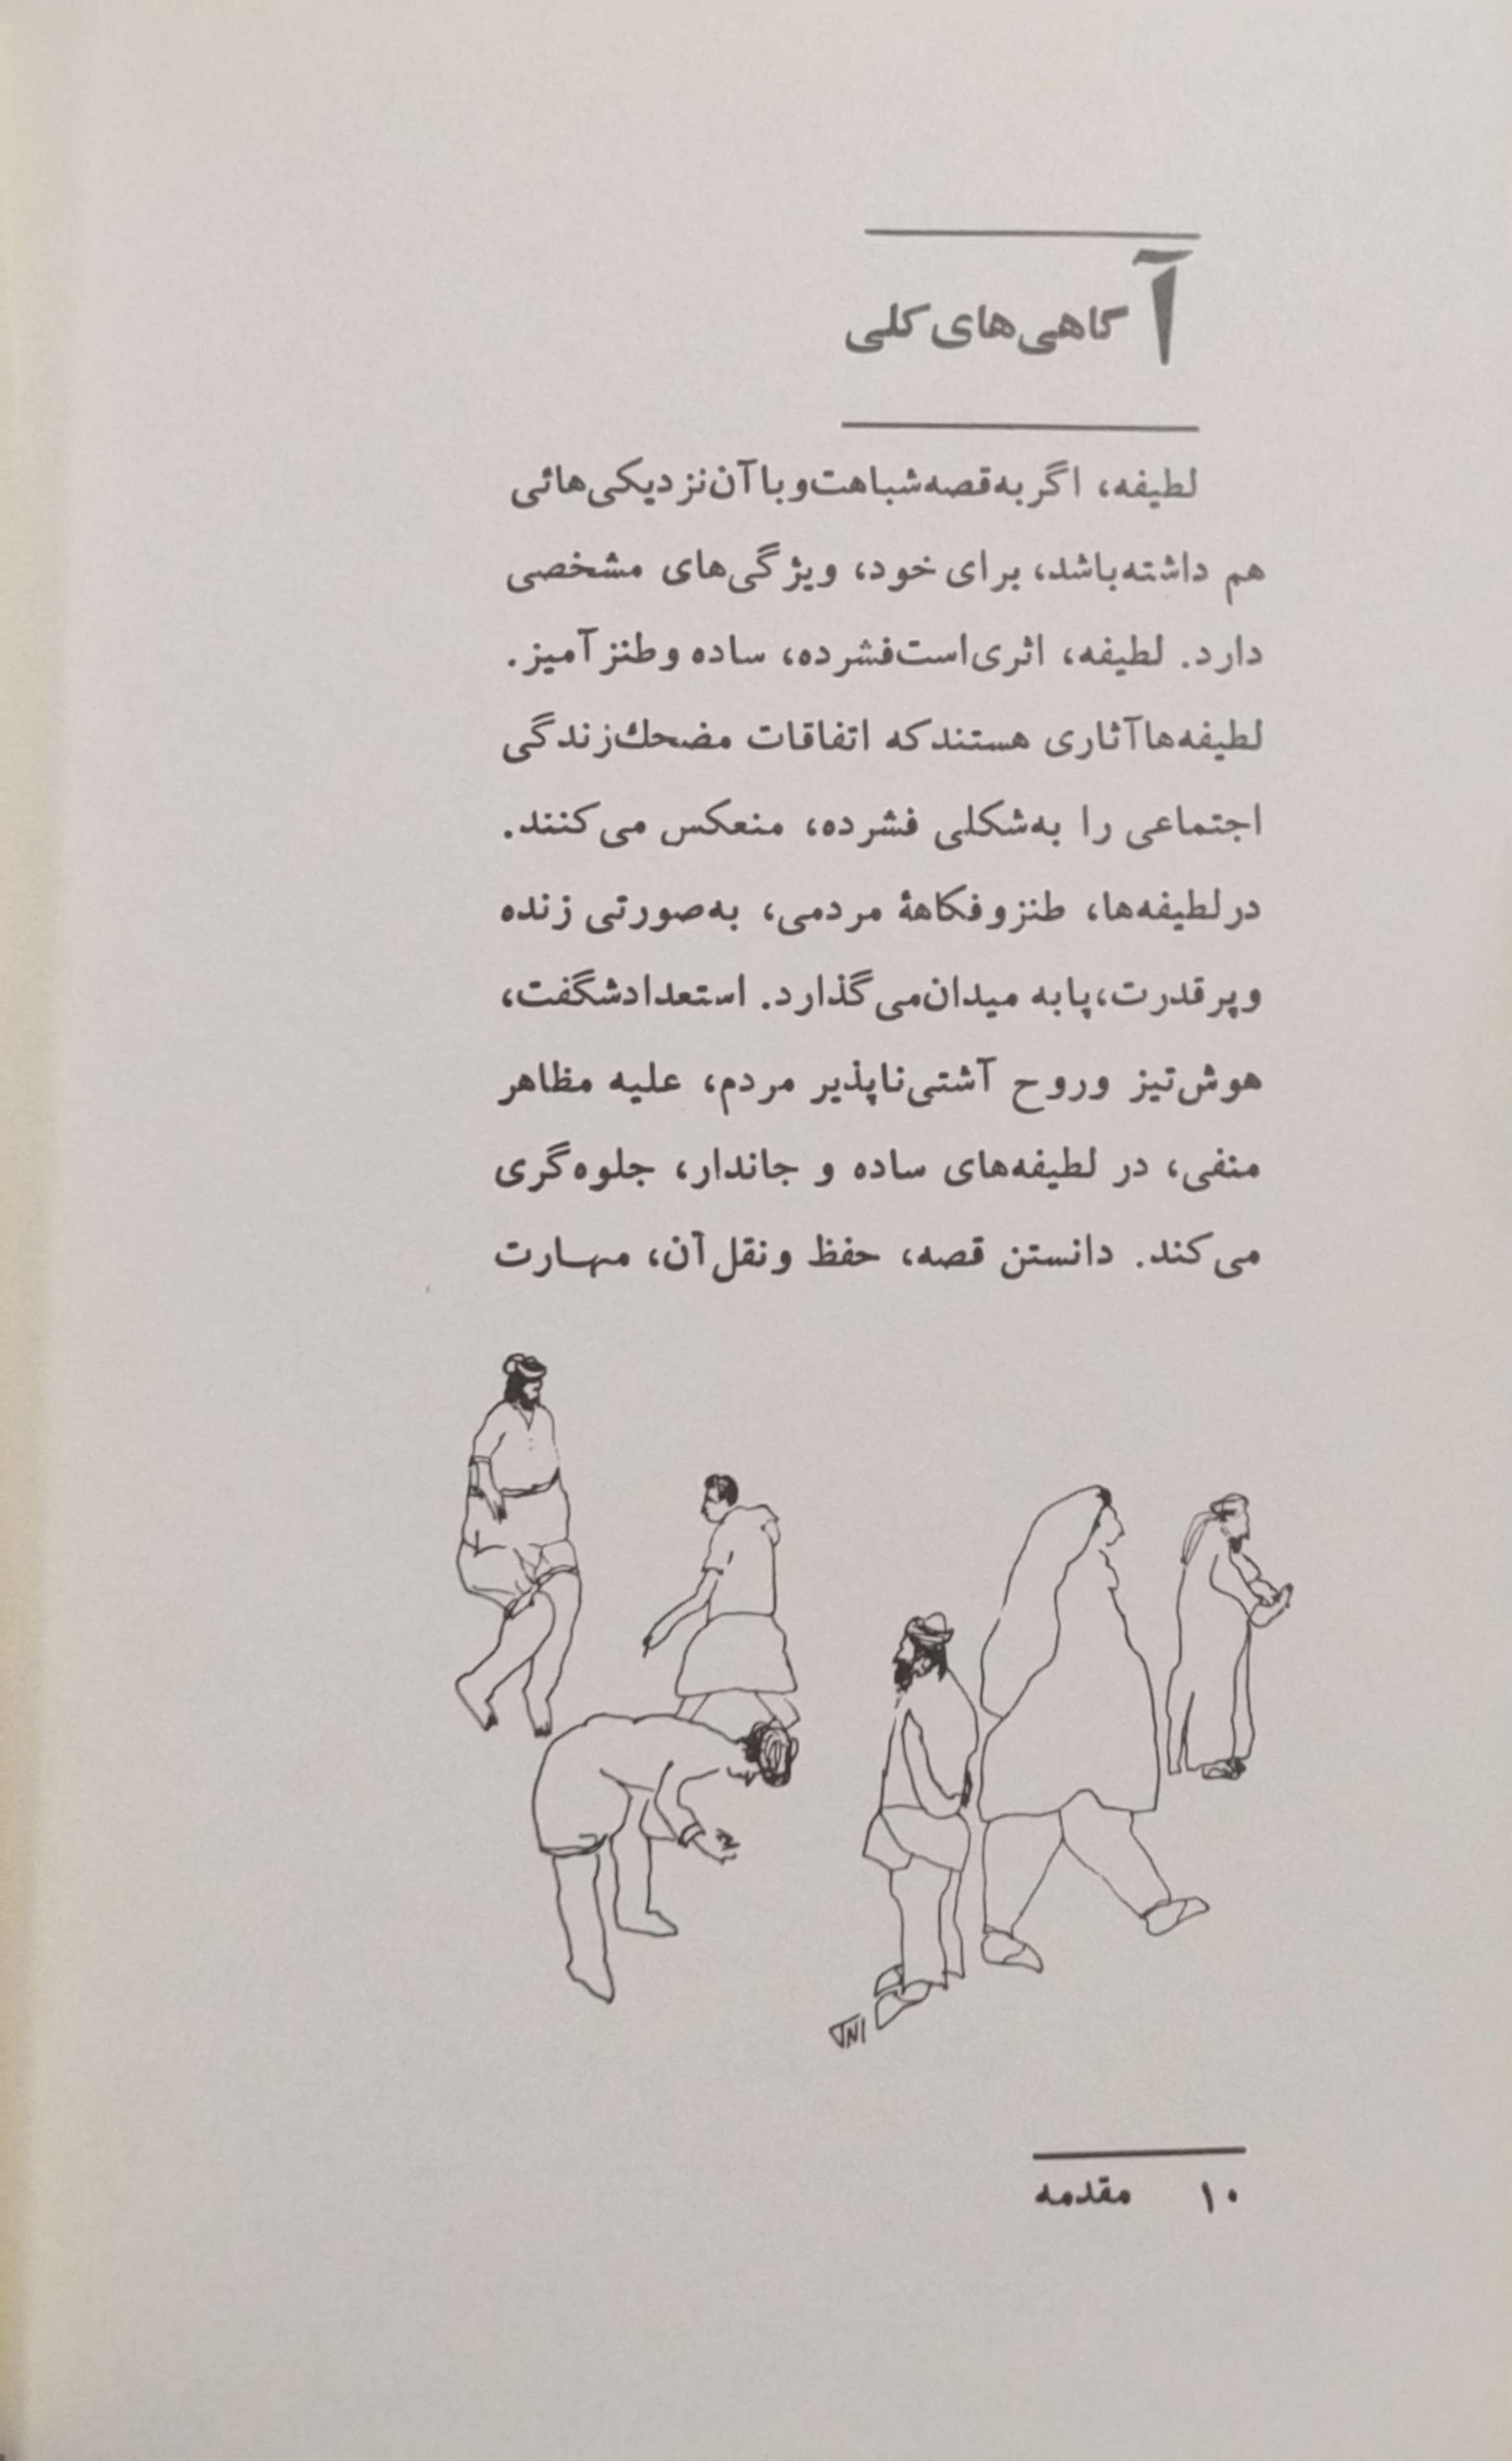 آگاهی‌های کلی
لطیفه، اگر به‌قصه شباهت و با آن نزدیکی‌هائی
هم داشته‌باشد، برای خود، ویژگی‌های مشخصی
دارد. لطیفه، اثری است فشرده، ساده و طنزآمیز.
لطیفه‌ها آثاری هستند که اتفاقات مضحك زندگی
اجتماعی را به‌شکلی فشرده، منعکس می‌کنند.
در لطیفه‌ها، طنز و فکاههٔ مردمی، به‌صورتی زنده
و پر قدرت، پا به میدان می‌گذارد. استعداد شگفت،
هوش تیز و روح آشتی‌ناپذیر مردم، علیه مظاهر
منفی، در لطیفه‌های ساده و جاندار، جلوه‌گری
می‌کند. دانستن قصه، حفظ و نقل آن، مهـارت
۱۰ مقدمه